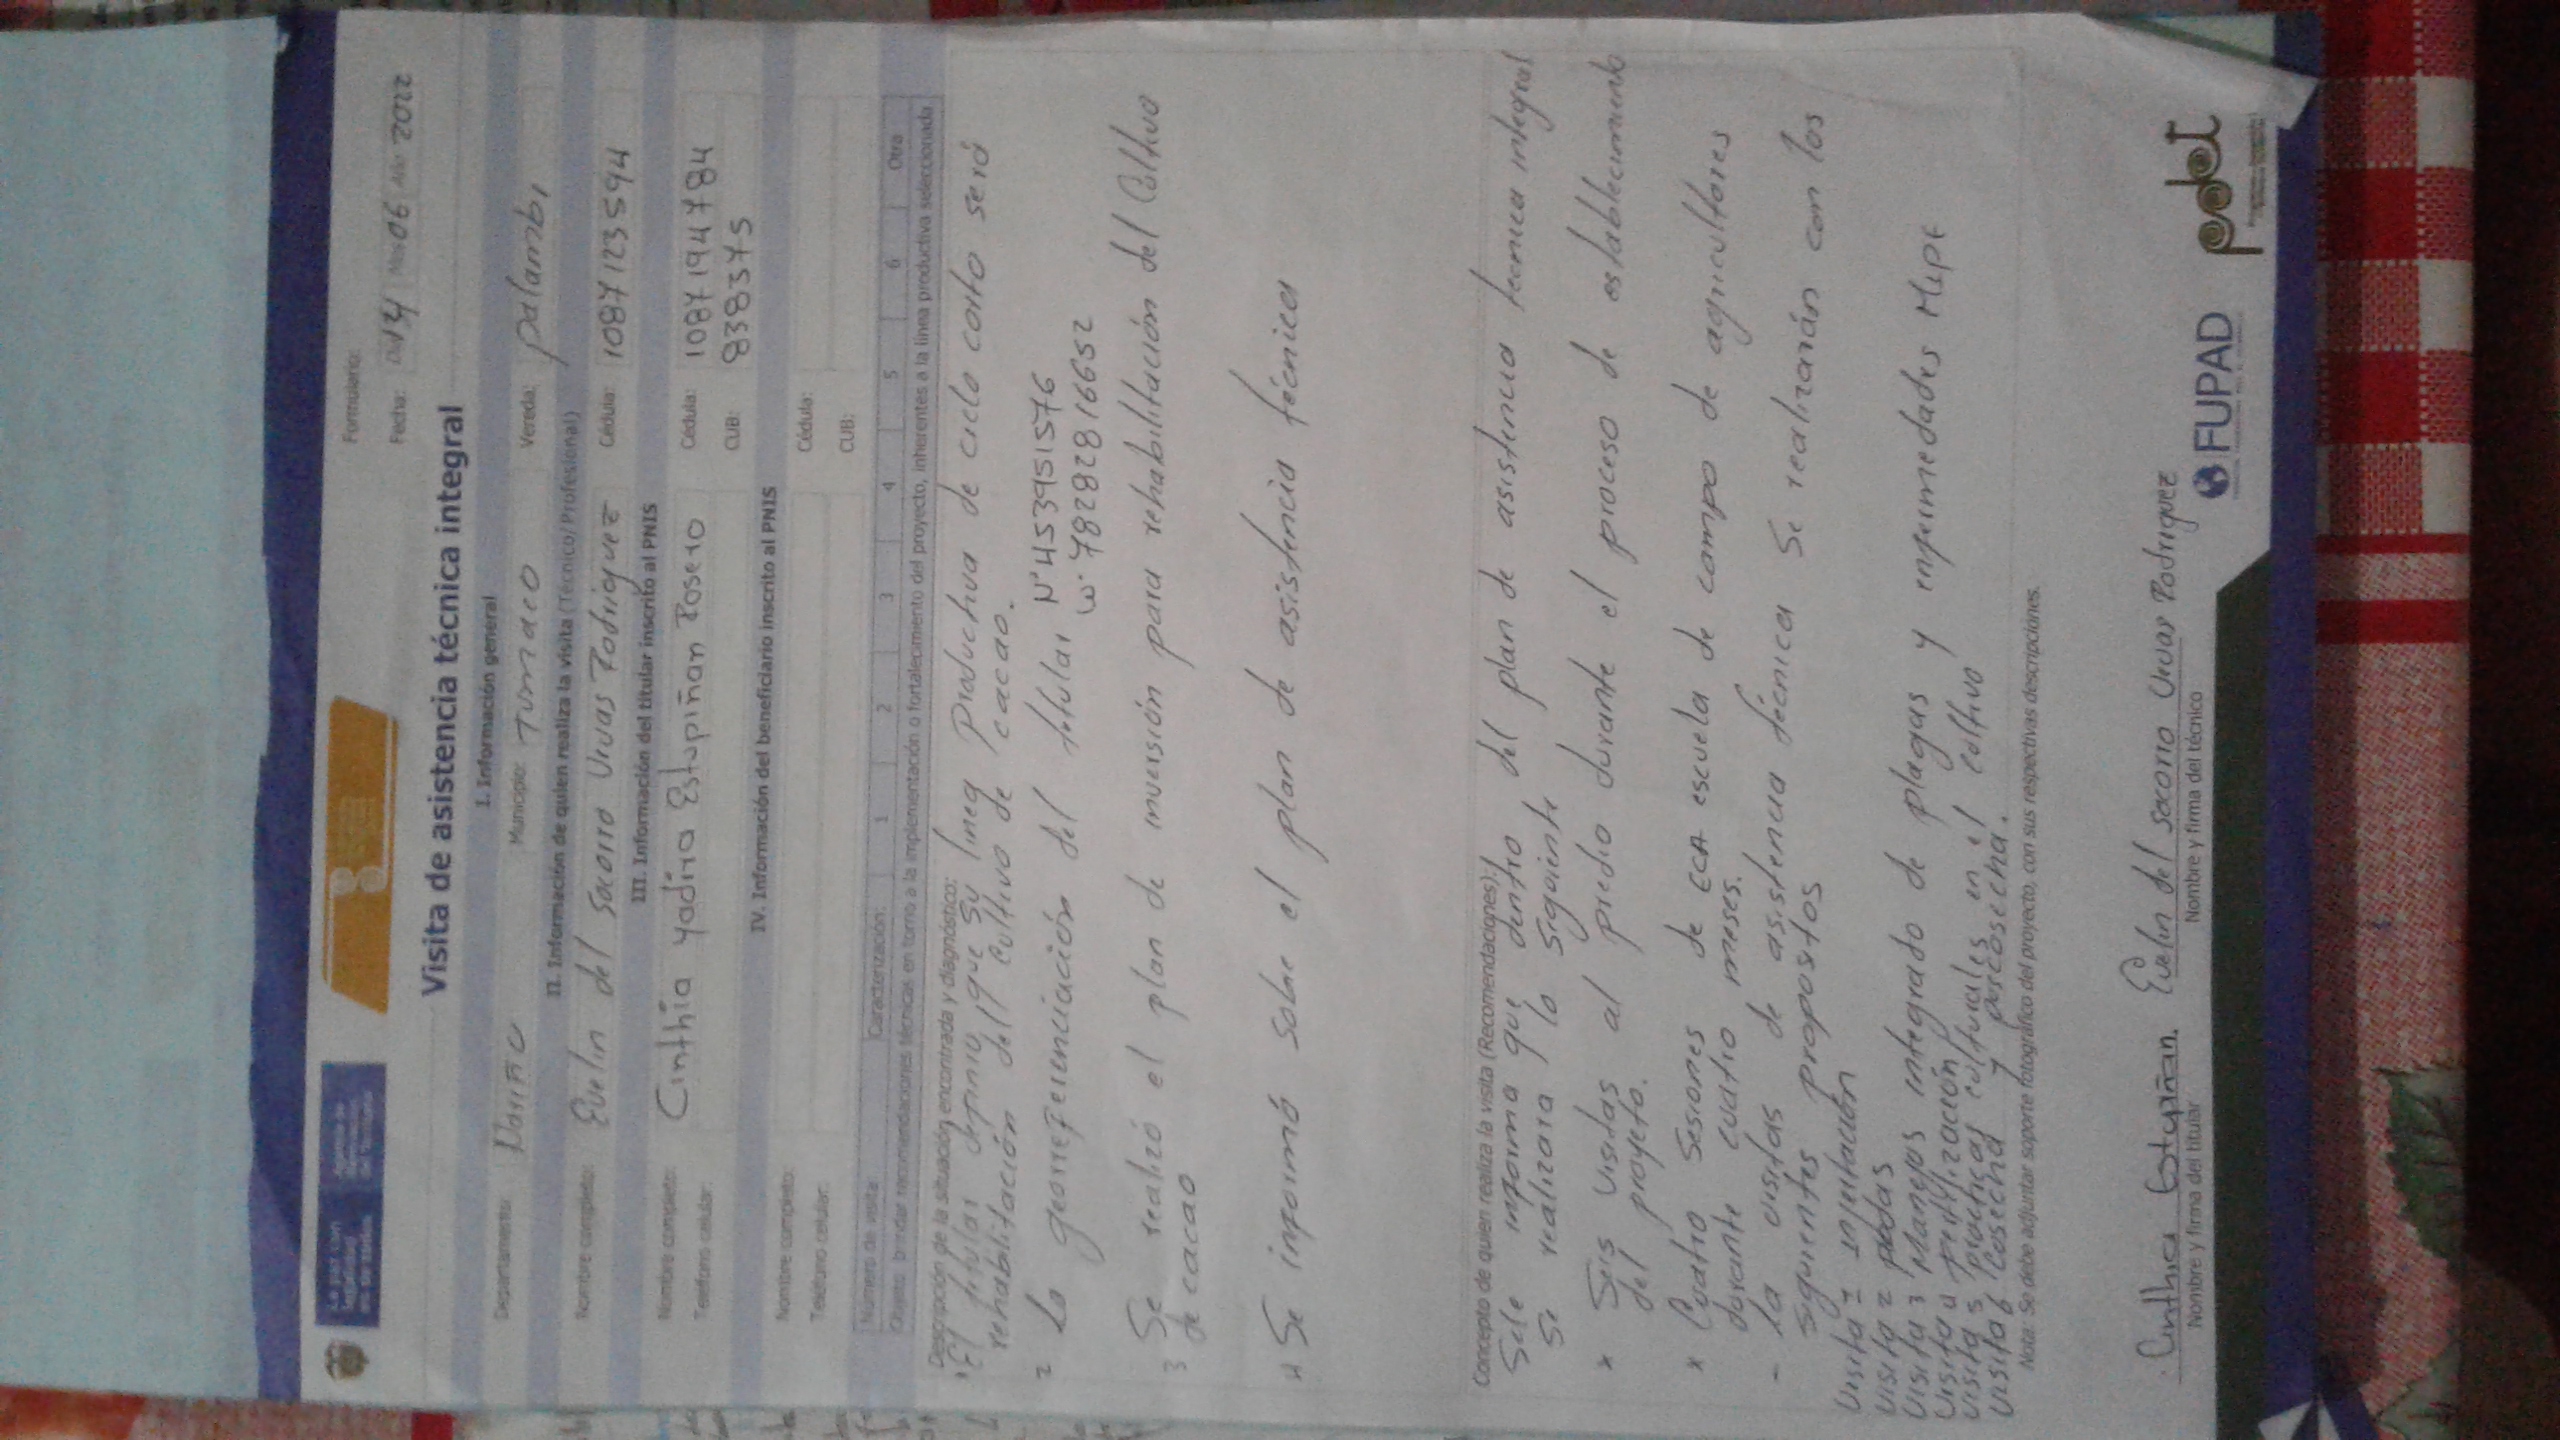 La paz con legalidad es de todos
Formulario:
Fecha: Día 14 Mes 06 Año 2022
Visita de asistencia técnica integral
I. Información general
Departamento: Nariño Municipio: Tumaco Vereda: palambi
II. Información de quien realiza la visita (Técnico/Profesional)
Nombre completo: Evelin del Socorro Vivas Rodriguez Cédula: 1087123594
III. Información del titular inscrito al PNIS
Nombre completo: Cinthia yadira Estupiñan Rosero Cédula: 1087194784
Teléfono celular: CUB: 838375
IV. Información del beneficiario inscrito al PNIS
Nombre completo: Cédula:
Teléfono celular: CUB:
Número de visita Caracterización: 1 2 3 4 5 6 Otra
Objeto: brindar recomendaciones técnicas en torno a la implementación o fortalecimiento del proyecto, inherentes a la línea productiva seleccionada
Descripción de la situación encontrada y diagnóstico:
1 El titular definio que su linea Productiva de ciclo corto será
rehabilitación del cultivo de cacao.
2 La georreferenciación del titular N° 453951576
W° 782828166652
3 Se realizó el plan de inversión para rehabilitación del Cultivo
de cacao
4 Se informó sobre el plan de asistencia técnica
Concepto de quien realiza la visita (Recomendaciones):
Sele informa que dentro del plan de asistencia tecnica integral
Se realizara lo siguiente
x Seis visitas al predio durante el proceso de establecimiento
del proyeto.
x Cuatro Sesiones de ECA escuela de campo de agricultores
durante cuatro meses.
- la visitas de asistencia técnica Se realizarán con los
siguientes propositos
Visita 1 instalación
Visita 2 podas
Visita 3 Manejos integrado de plagas y enfermedades MIPE
Visita 4 fertilización
visita 5 practicas culturales en el cultivo
visita 6 Cosecha y poscosecha.
Nota: Se debe adjuntar soporte fotográfico del proyecto, con sus respectivas descripciones.
Cinthia Estupiñan. Evelin del Socorro Vivas Rodriguez
Nombre y firma del titular Nombre y firma del técnico
FUPAD pdet